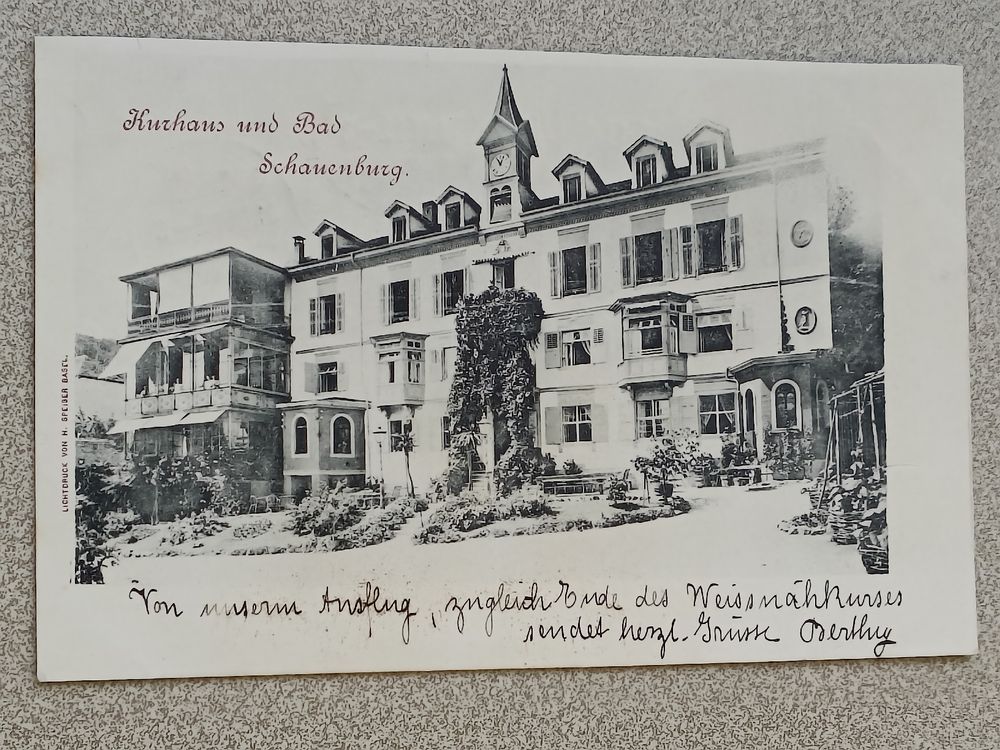 Kurhaus und Bad
Schauenburg.
LICHTDRUCK VON H. SPEISER BASEL.
Von unserm Ausflug, zugleich Ende des Weissnähkurses
sendet herzl. Grüsse